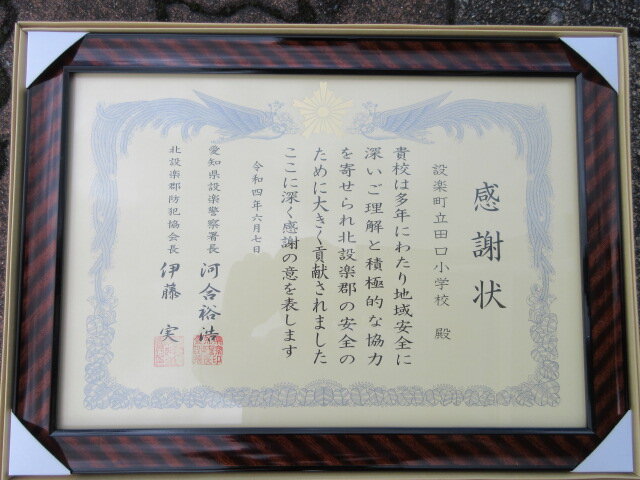 感謝状
設楽町立田口小学校 殿
貴校は多年にわたり地域安全に
深いご理解と積極的な協力
を寄せられ北設楽郡の安全の
ために大きく貢献されました
ここに深く感謝の意を表します
令和四年六月七日
愛知県設楽警察署長 河合裕浩
北設楽郡防犯協会長 伊藤 実